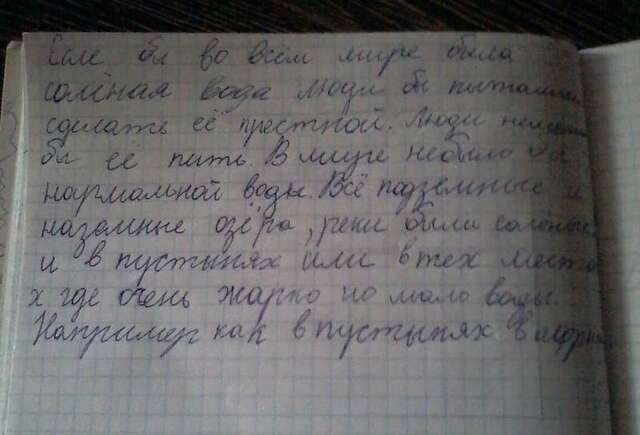 Если бы во всём мире была
солёная вода люди бы пытались
сделаже её престной. Люди
бы её пить. В мире небыло
нармальной воды. Всё подземные и
наземные озёра, реки были солёные
и в пустынях или в тех места
х где очень жарко но мало воды.
Например как в пустынях в африке